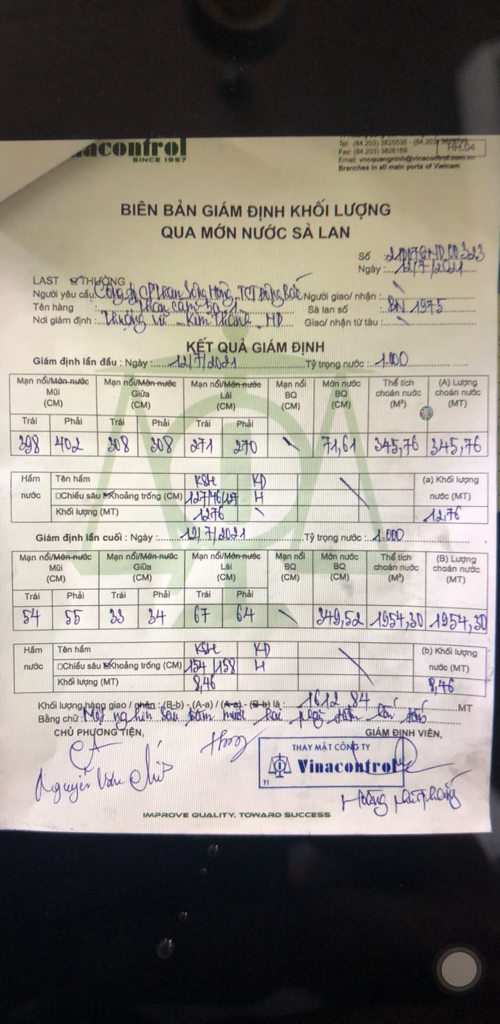 nacontrol
SINCE 1957
Tel: (84.203) 3825535 -
Fax: (84.203) 3826169
Email: vncquangninh@vinacontrol.com.vn
Branches in all main ports of Vietnam
HH.04
BIÊN BẢN GIÁM ĐỊNH KHỐI LƯỢNG
QUA MỚN NƯỚC SÀ LAN
Số :
Ngày: 12/7/2021
LAST THƯỜNG
Người yêu cầu Người giao/ nhận :
Tên hàng : Than cám Sà lan số : BN 1975
Nơi giám định : Giao/ nhận từ tàu :
KẾT QUẢ GIÁM ĐỊNH
Giám định lần đầu : Ngày : 12/7/2021 Tỷ trọng nước : 1.000
Mạn nổi/Mớn nước Mũi (CM) Mạn nổi/Mớn nước Giữa (CM) Mạn nổi/Mớn nước Lái (CM) Mạn nổi BQ (CM) Mớn nước BQ (CM) Thể tích choán nước (M³) (A) Lượng choán nước (MT)
Trái Phải Trái Phải Trái Phải
398 402 308 308 271 270 \ 71,61 345,76 345,76
Hầm nước Tên hầm KSH KD (a) Khối lượng nước (MT)
Chiều sâu Khoảng trống (CM) H
Khối lượng (MT) 12,76 12,76
Giám định lần cuối : Ngày : 12/7/2021 Tỷ trọng nước : 1.000
Mạn nổi/Mớn nước Mũi (CM) Mạn nổi/Mớn nước Giữa (CM) Mạn nổi/Mớn nước Lái (CM) Mạn nổi BQ (CM) Mớn nước BQ (CM) Thể tích choán nước (M³) (B) Lượng choán nước (MT)
Trái Phải Trái Phải Trái Phải
54 55 33 34 67 64 \ 349,52 1954,30 1954,30
Hầm nước Tên hầm KSH KD (b) Khối lượng nước (MT)
Chiều sâu Khoảng trống (CM) 154 /158 H
Khối lượng (MT) 8,46 8,46
Khối lượng hàng giao / nhận : (B-b) - (A-a) / (A-a) - (B-b) là : 1612,84 MT
Bằng chữ : Một nghìn sáu trăm mười hai phẩy tám bốn tấn
CHỦ PHƯƠNG TIỆN, GIÁM ĐỊNH VIÊN,
THAY MẶT CÔNG TY
Vinacontrol
Nguyễn Văn Chử
IMPROVE QUALITY, TOWARD SUCCESS